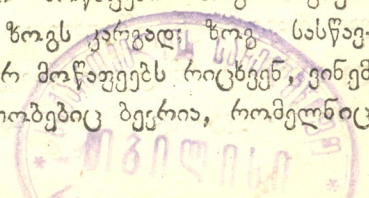 ზოგს კარგად; ზოგ სასწავ-
რ მოწაფეებს რიცხვენ, ვინემ
ობებიც ბევრია, რომელნიც
თბილისი